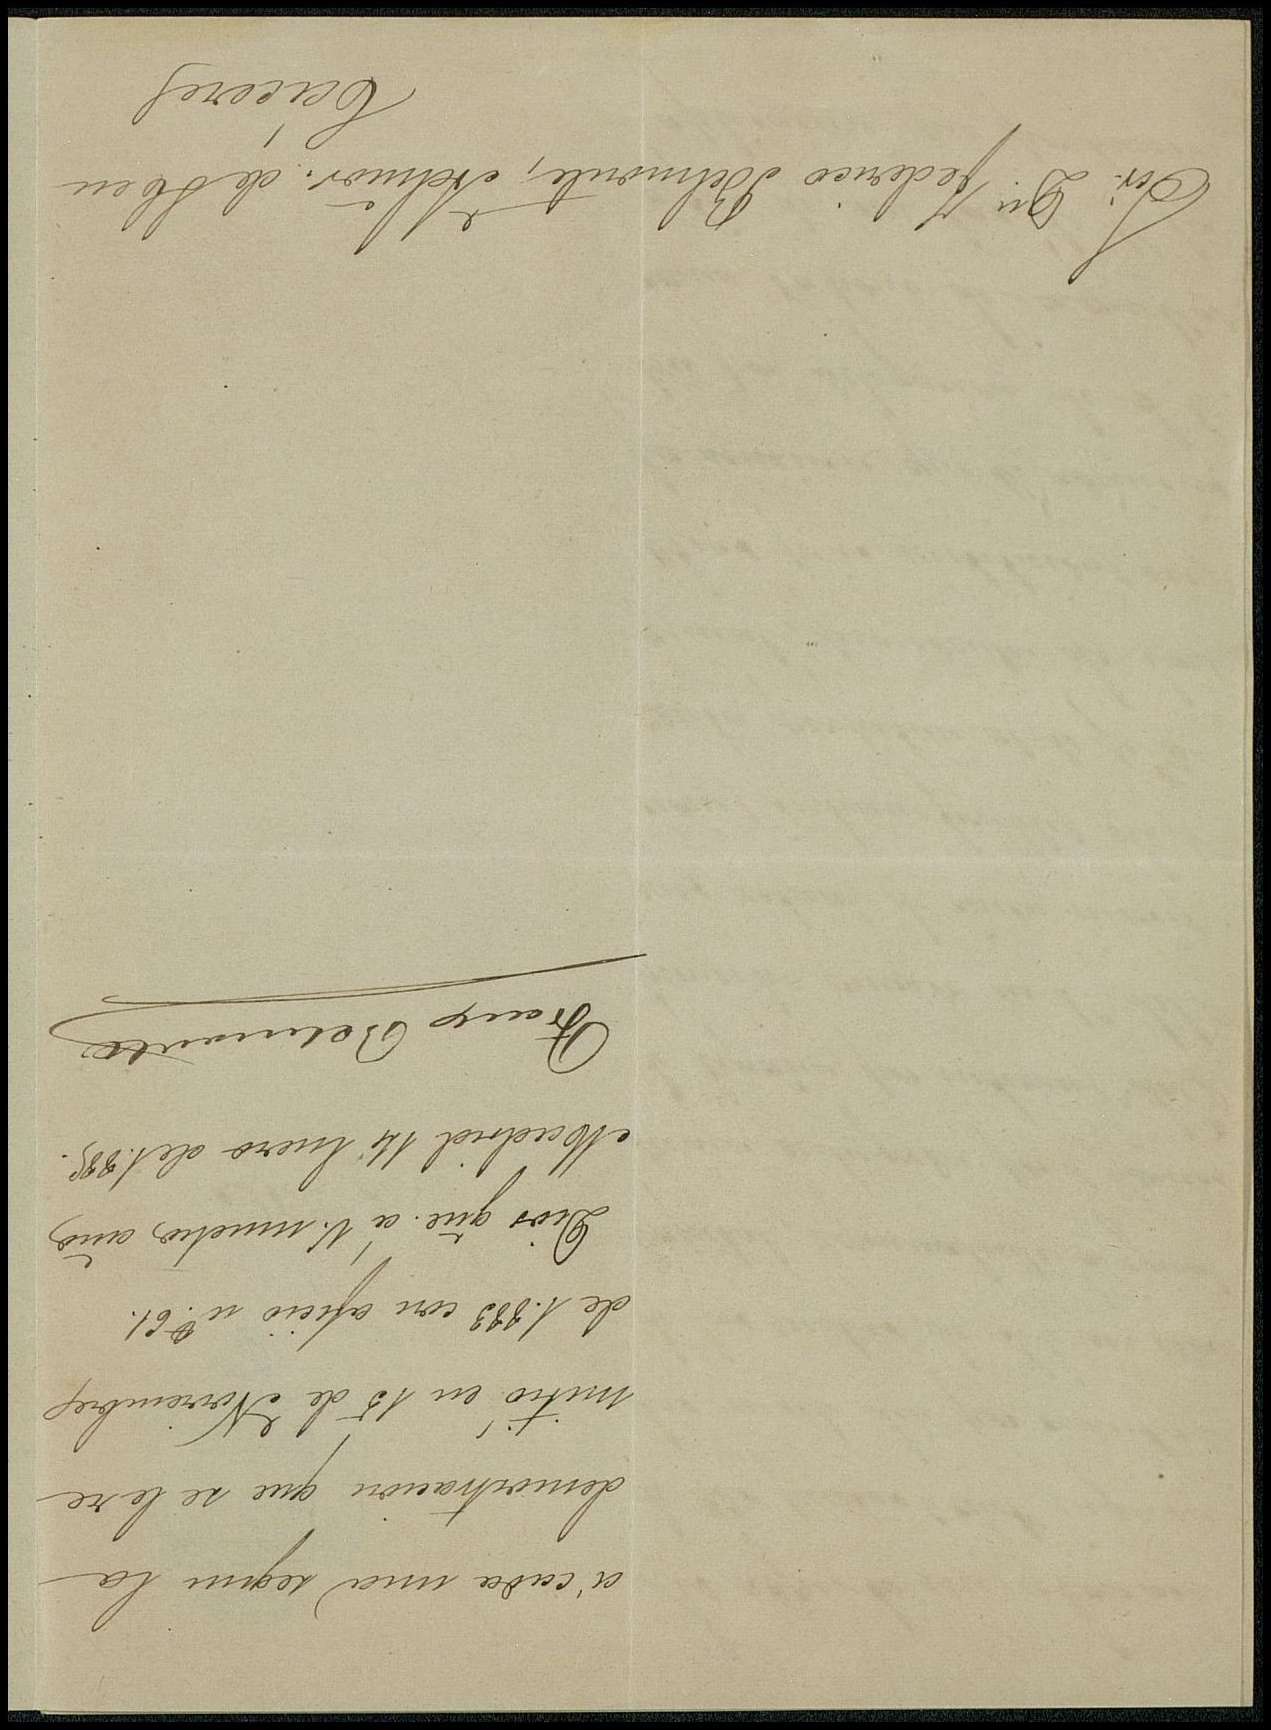 á cada una segun la
demostracion que se le re
mitió en 15 de Noviembre
de 1.883 con oficio n.º 61.
Dios gũe. á V. muchos años
Madrid 14 Enero de 1.885.
Franco Belmonte
Sr. Dn. Federico Belmonte, Admor. de Hª en
Cáceres